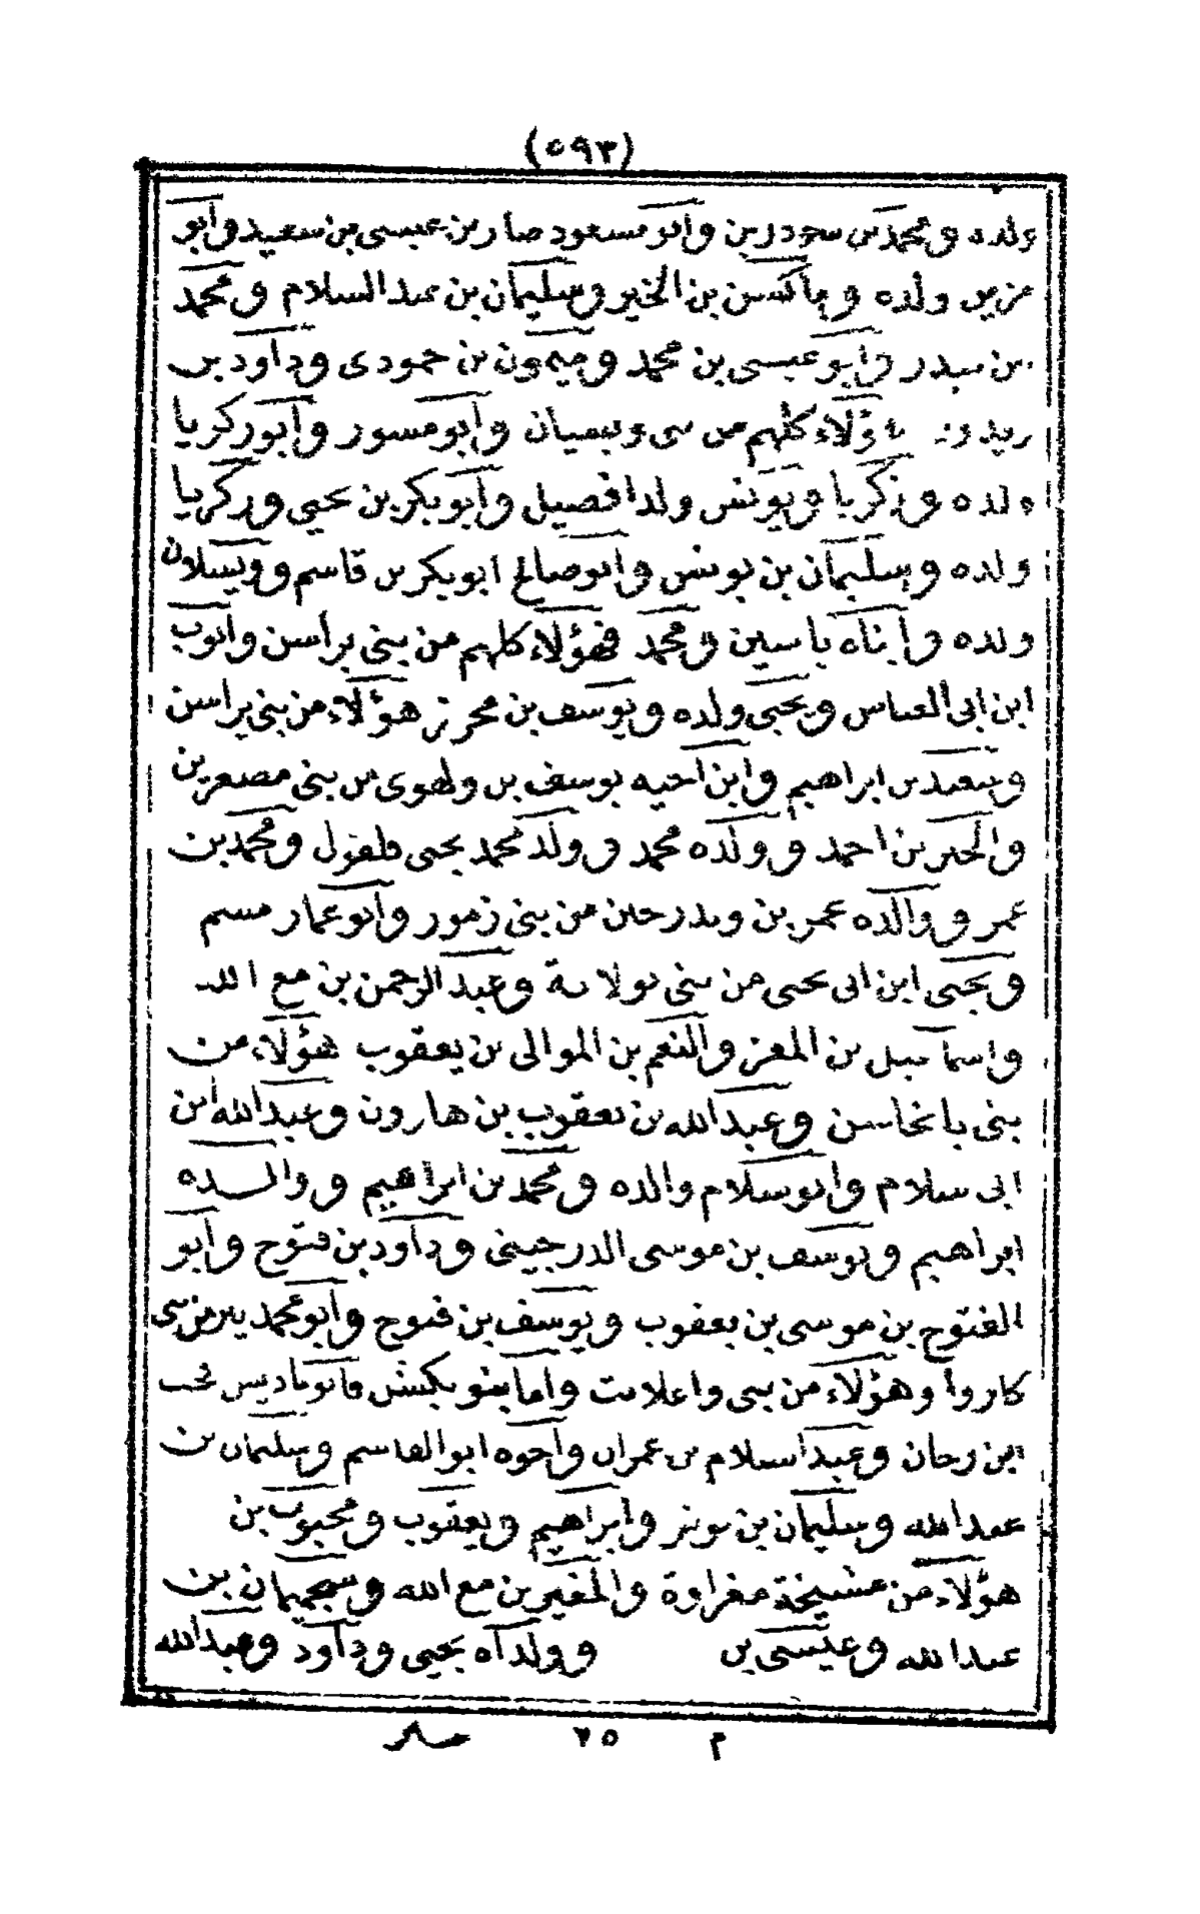 (٥٩٣)
ولده ومحمد بن سحدرين وأبو مسعود صارين عيسى بن سعيد وأبو
ولده وماكسن بن الخير وسليمان بن عبد السلام ومحمد
بن سدر وأبو عيسى بن محمد وميمون بن حمودى وداود بن
هؤلاء كلهم من وأبو مسور وأبو زكريا
ولده وزكريا ويونس ولدا فصيل وأبو بكر بن يحيى وزكريا
ولده وسليمان بن يونس وأبو صالح ابو بكر بن قاسم وويسلان
ولده وأبناه ياسين ومحمد فهؤلاء كلهم من بنى يراسن وأيوب
ابن ابى العباس ويحيى ولده ويوسف بن محرز هؤلاء من بنى يراسن
وسعيد بن ابراهيم وابن أخيه يوسف بن ولهوى من بنى مصعر بن
والخير بن احمد وولده محمد وولد محمد يحيى فلفول ومحمد بن
عمر ووالده عمر بن ويدرحين من بنى زمور وأبو عمار مسم
ويحيى ابن ابى يحيى من بنى تولاتة وعبد الرحمن بن مع الله
واسماعيل بن المعز والنعم بن الموالى بن يعقوب هؤلاء من
بنى يانخاسن وعبد الله بن يعقوب بن هارون وعبد الله ابن
ابى سلام وابو سلام والده ومحمد بن ابراهيم ووالده
ابراهيم ويوسف بن موسى الدرجينى وداود بن فتوح وأبو
الفتوح بن موسى بن يعقوب ويوسف بن فتوح وأبو محمد
كاروا وهؤلاء من بنى واعلانت وامابنو يكشن فابو باديس
ابن رحان وعبد السلام بن عمران وأخوه ابو القاسم وسليمان بن
عبد الله وسليمان بن وابراهيم ويعقوب ومحبوب بن
هؤلاء من مشيخة مغراوة والمغير بن مع الله وسجميمان بن
عبد الله وعيسى بن وولداه يحيى وداود وعبد الله
م ٢٥ سير